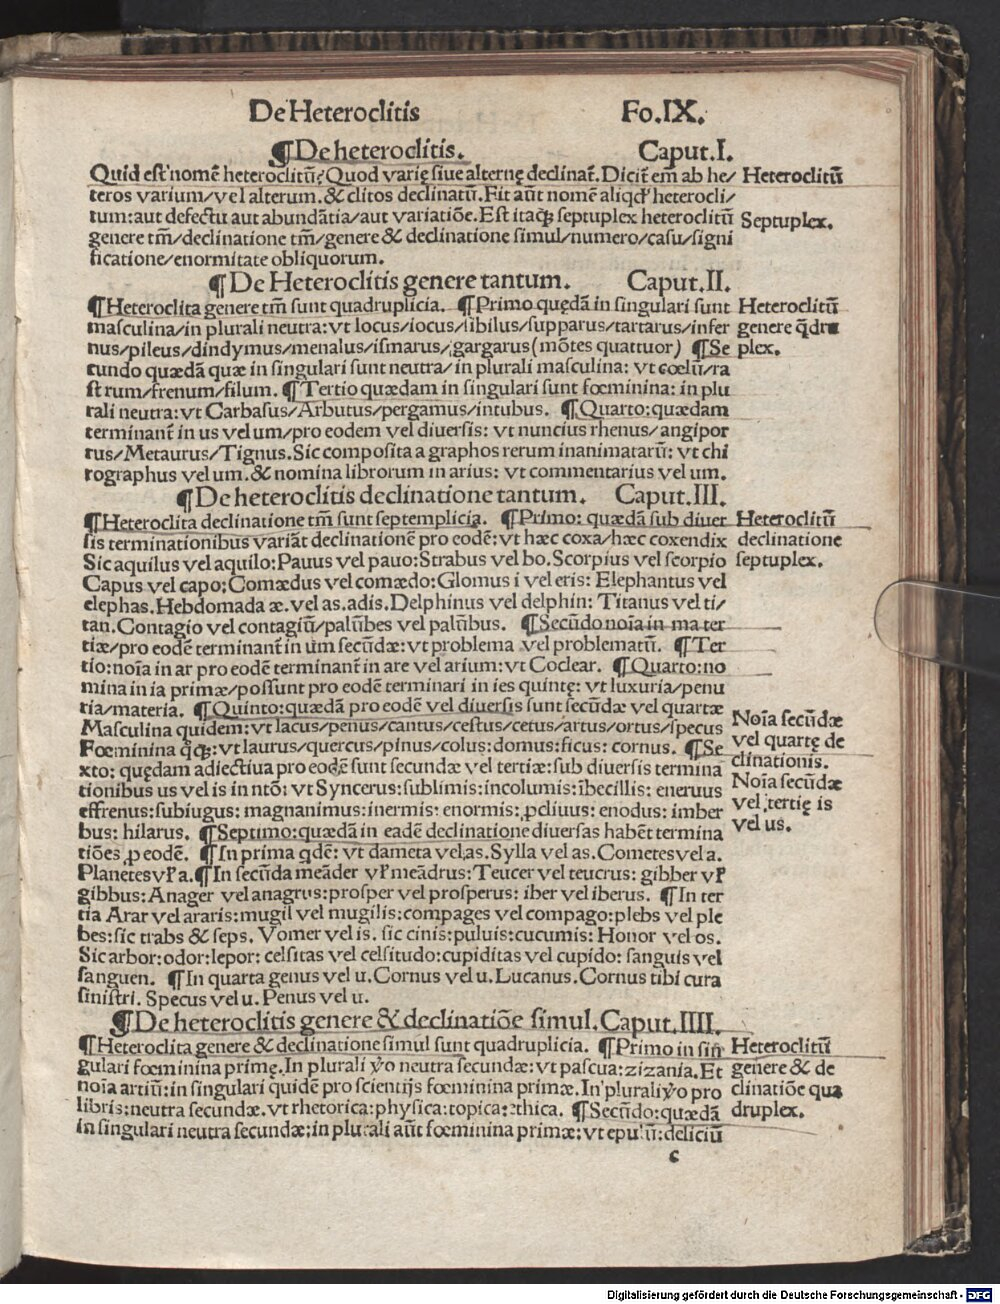 De Heteroclitis Fo.IX.
¶De heteroclitis. Caput.I.
Quid est nomē heteroclitū? Quod varię siue alternę declinat̄. Dicit̄ em̄ ab he/
teros varium/vel alterum. & clitos declinatū. Fit aūt nomē aliqd' heterocli/
tum: aut defectu aut abundātia/aut variatiōe. Est itaqꝫ septuplex heteroclitū
genere tm̄/declinatione tm̄/genere & declinatione simul/numero/casu/signi
ficatione/enormitate obliquorum.
Heteroclitū
Septuplex.
¶De Heteroclitis genere tantum. Caput.II.
¶Heteroclita genere tm̄ sunt quadruplicia. ¶Primo quędā in singulari sunt
masculina/in plurali neutra: vt locus/iocus/sibilus/supparus/tartarus/infer
nus/pileus/dindymus/menalus/ismarus/gargarus (mōtes quattuor) ¶Se
cundo quædā quæ in singulari sunt neutra/in plurali masculina: vt cœlū/ra
strum/frenum/filum. ¶Tertio quædam in singulari sunt fœminina: in plu
rali neutra: vt Carbasus/Arbutus/pergamus/intubus. ¶Quarto: quædam
terminant̄ in us vel um/pro eodem vel diuersis: vt nuncius rhenus/angipor
tus/Metaurus/Tignus. Sic composita a graphos rerum inanimatarū: vt chi
rographus vel um. & nomina librorum in arius: vt commentarius vel um.
Heteroclitū
genere q̄dru
plex.
¶De heteroclitis declinatione tantum. Caput.III.
¶Heteroclita declinatione tm̄ sunt septemplicia. ¶Primo: quædā sub diuer
sis terminationibus variāt declinationē pro eodē: vt hæc coxa/hæc coxendix
Sic aquilus vel aquilo: Pauus vel pauo: Strabus vel bo. Scorpius vel scorpio
Capus vel capo; Comædus vel comædo: Glomus i vel eris: Elephantus vel
elephas. Hebdomada æ. vel as. adis. Delphinus vel delphin: Titanus vel ti/
tan. Contagio vel contagiū/palūbes vel palūbus. ¶Secūdo noīa in ma ter
tiæ/pro eodē terminant̄ in um secūdæ: vt problema vel problematū. ¶Ter
tio: noīa in ar pro eodē terminant̄ in are vel arium: vt Coclear. ¶Quarto: no
mina in ia primæ/possunt pro eodē terminari in ies quintę: vt luxuria/penu
ria/materia. ¶Quinto: quædā pro eodē vel diuersis sunt secūdæ vel quartæ
Masculina quidem: vt lacus/penus/cantus/cestus/cetus/artus/ortus/specus
Fœminina q̄qꝫ: vt laurus/quercus/pinus/colus: domus: ficus: cornus. ¶Se
xto: quędam adiectiua pro eodē sunt secundæ vel tertiæ: sub diuersis termina
tionibus us vel is in ntō: vt Syncerus: sublimis: incolumis: ībecillis: eneruus
effrenus: subiugus: magnanimus: inermis: enormis: ꝓcliuus: enodus: imber
bus: hilarus. ¶Septimo: quædā in eadē declinatione diuersas habēt termina
tiōes ꝓ eodē. ¶In prima qdē: vt dameta vel as. Sylla vel as. Cometes vel a.
Planetes vꝉ a. ¶In secūda meāder vꝉ meādrus: Teucer vel teucrus: gibber vꝉ
gibbus: Anager vel anagrus: prosper vel prosperus: iber vel iberus. ¶In ter
tia Arar vel araris: mugil vel mugilis: compages vel compago: plebs vel ple
bes: sic trabs & seps. Vomer vel is. sic cinis: puluis: cucumis: Honor vel os.
Sic arbor: odor: lepor: celsitas vel celsitudo: cupiditas vel cupido: sanguis vel
sanguen. ¶In quarta genus vel u. Cornus vel u. Lucanus. Cornus tibi cura
sinistri. Specus vel u. Penus vel u.
Heteroclitū
declinatione
septuplex.
Noīa secūdæ
vel quartę de
clinationis.
Noīa secūdæ
vel tertię is
vel us.
¶De heteroclitis genere & declinatiōe simul. Caput.IIII.
¶Heteroclita genere & declinatione simul sunt quadruplicia. ¶Primo in sin
gulari fœminina primę. In plurali v̊o neutra secundæ: vt pascua: zizania. Et
noīa artiū: in singulari quidē pro scientijs fœminina primæ. In plurali v̊o pro
libris: neutra secundæ. vt rhetorica: physica: topica: ethica. ¶Secūdo: quædā
in singulari neutra secundæ; in plurali aūt fœminina primæ: vt epulū: deliciū
Heteroclitū
genere & de
clinatiōe qua
druplex.
c
Digitalisierung gefördert durch die Deutsche Forschungsgemeinschaft - DFG